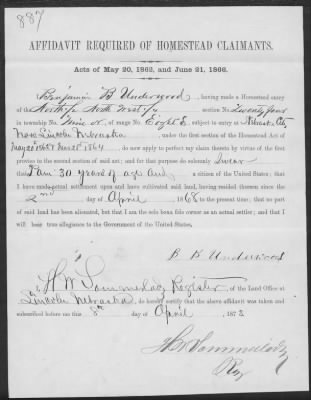 887
AFFIDAVIT REQUIRED OF HOMESTEAD CLAIMANTS.
Acts of May 20, 1862, and June 21, 1866.
I, Benjamin B Underwood, having made a Homestead entry
of the North ½ North West ¼ section No. Twenty four
in township No. Nine N, of range No. Eight E, subject to entry at Nebraska City
Now Lincoln Nebraska, under the first section of the Homestead Act of
do now apply to perfect my claim thereto by virtue of the first
proviso to the second section of said act; and for that purpose do solemnly Swear
that I am 30 years of age and a citizen of the United States; that I
have made actual settlement upon and have cultivated said land, having resided thereon since the
2nd day of April 1868 to the present time; that no part
of said land has been alienated, but that I am the sole bona fide owner as an actual settler; and that I
will bear true allegiance to the Government of the United States.
B B Underwood
I, Register, of the Land Office at
Lincoln Nebraska, do hereby certify that the above affidavit was taken and
subscribed before me this 8th day of April 1873
Reg